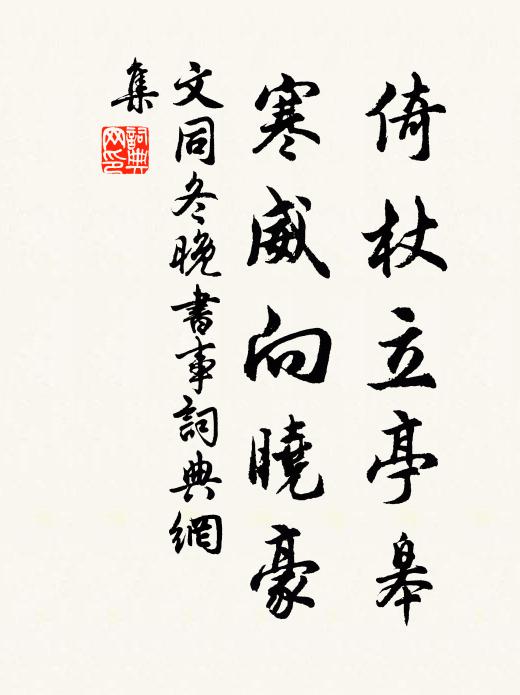 倚杖立亭皋
寒威向曉豪
文同冬晚書事詞典網
集
詞典網印